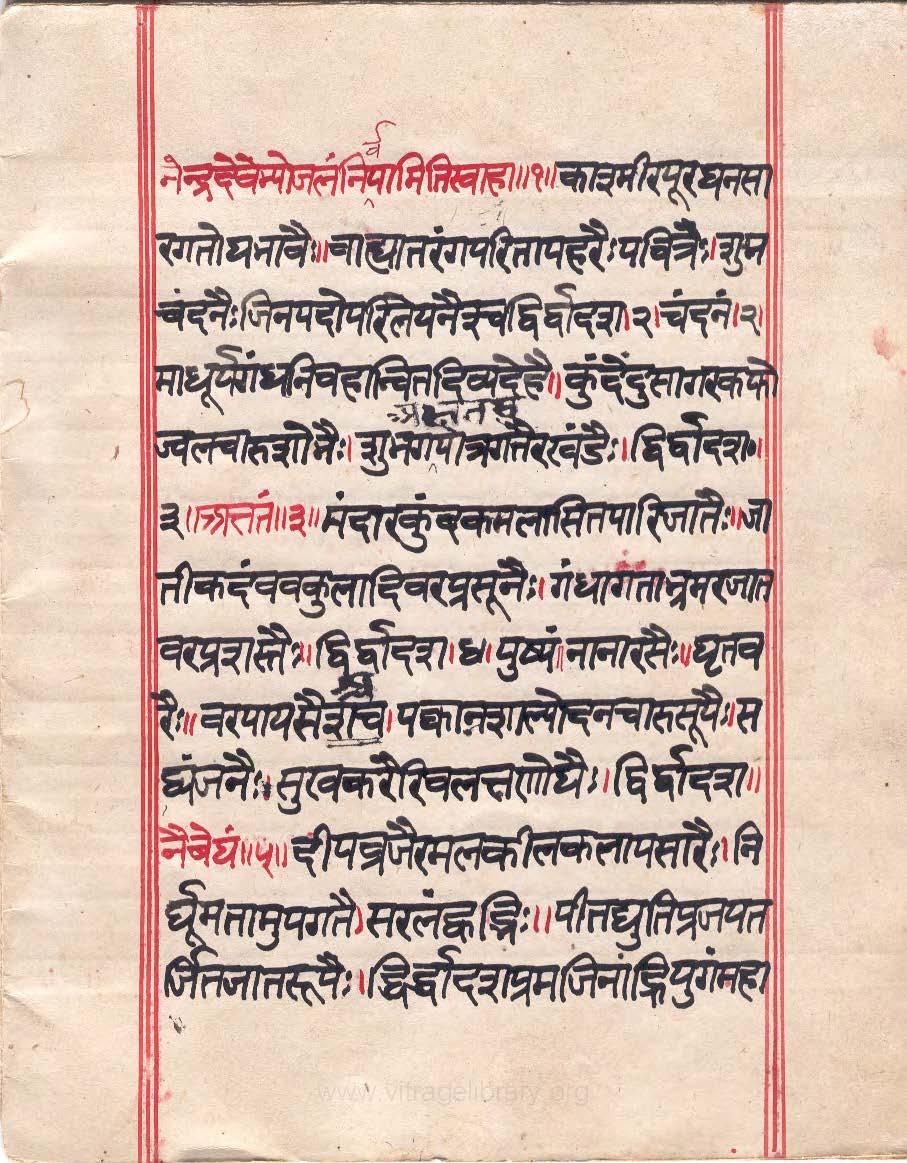 नेन्द्रदेवेम्योजलंनिर्वपामितिस्वाहा॥१॥काश्मीरपूरघनसा
रगतोघभावैः॥वाह्यातरंगपरितापहरैःपवित्रैः।शुभ
चंदनैःजिनपदोपरिलेपनैश्चद्विर्द्वादश।२।चंदनं।२।
माधूर्यगंधनिवहान्वितदिव्यदेहै॥कुंदेंदुसागरकफो
अक्षतसु
ज्वलचारुशोभैः।शुभगपात्रगतैरखंडैः।द्विर्द्वादश॰।
३।अक्षतं॥३॥मंदारकुंदकमलासितपारिजातैः॥जा
तीकदंववकुलादिवरप्रसूनैः।गंधागताभ्रमरजात
वरप्रशस्तैः॥द्विर्द्वादश।४।पुष्पं॥नानारसैः॥घृतव
रैः॥वरपायसैश्च।पक्वान्नशाल्योदनचारुसूपैः।स
द्व्यंजनैः।सुखकरैरिवलक्षणोघैः।द्विर्द्वादश॥
नैवेद्यं॥५॥दीपव्रजैरमलकीलकलापसारैः।नि
र्धूमतामुपगतै।सरलंज्वलद्भिः॥पीतद्युतिप्रजयत
र्जितजातरूपैः।द्विर्द्वादशप्रमजिनांह्रियुगंमहा
www.vitragelibrary.org